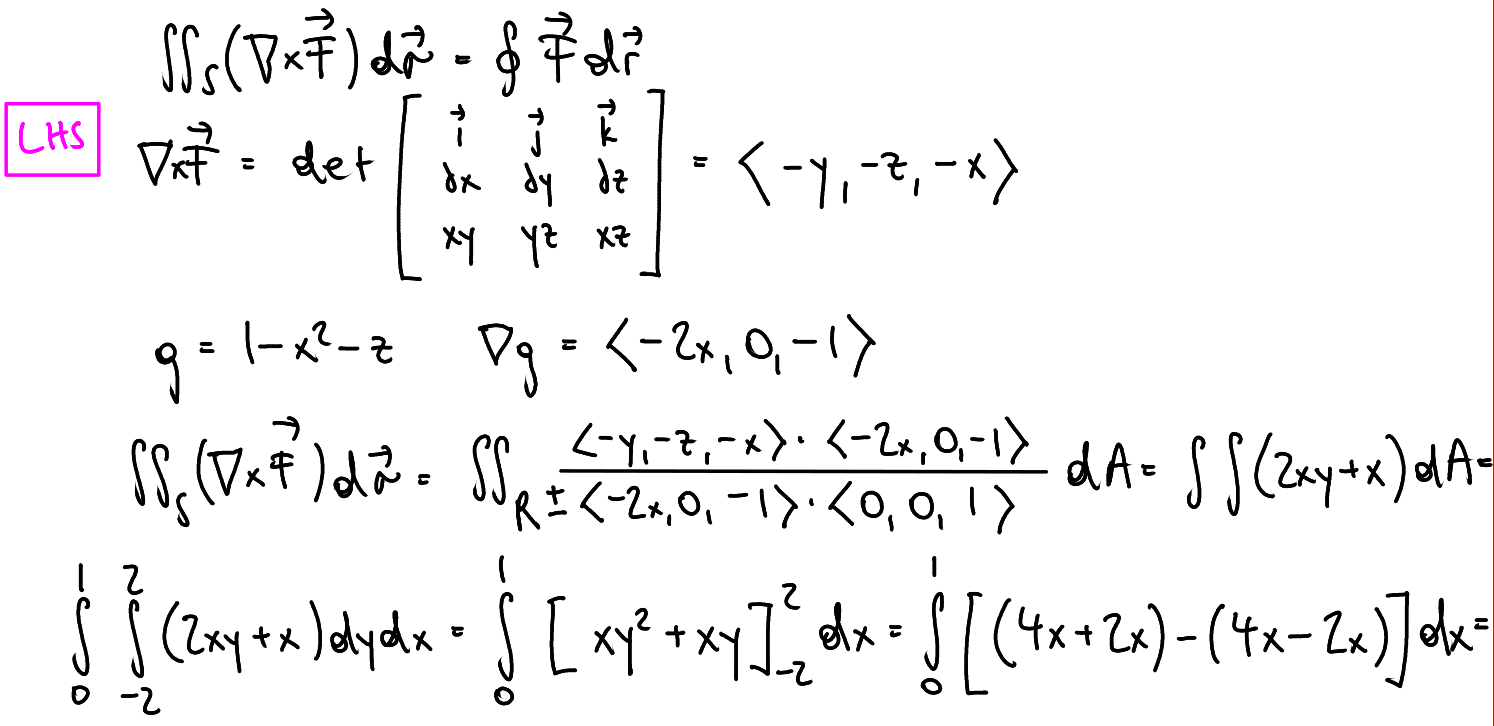 ∬_S (∇×F⃗) da⃗ = ∮ F⃗ dr⃗
LHS
∇×F⃗ = det [ i⃗ j⃗ k⃗ ; ∂x ∂y ∂z ; xy yz xz ] = ⟨-y, -z, -x⟩
g = 1-x²-z ∇g = ⟨-2x, 0, -1⟩
∬_S (∇×F⃗) da⃗ = ∬_R (⟨-y, -z, -x⟩ · ⟨-2x, 0, -1⟩) / (± ⟨-2x, 0, -1⟩ · ⟨0, 0, 1⟩) dA = ∫∫ (2xy+x) dA =
∫_0^1 ∫_{-2}^2 (2xy+x) dy dx = ∫_0^1 [xy²+xy]_{-2}^2 dx = ∫_0^1 [(4x+2x)-(4x-2x)] dx =